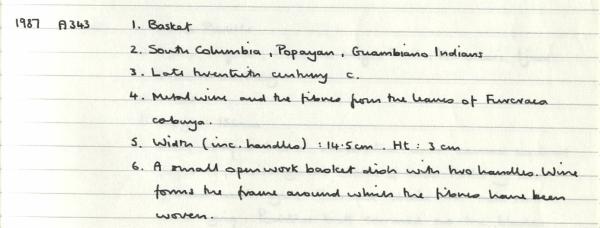 1987 A343 1. Basket
2. South Columbia, Popayan, Guambiano Indians
3. Late twentieth century c.
4. Metal wire and the fibres from the leaves of Furcraea
cabuya.
5. Width (inc. handles) : 14.5cm. Ht : 3 cm
6. A small openwork basket dish with two handles. Wire
forms the frame around which the fibres have been
woven.